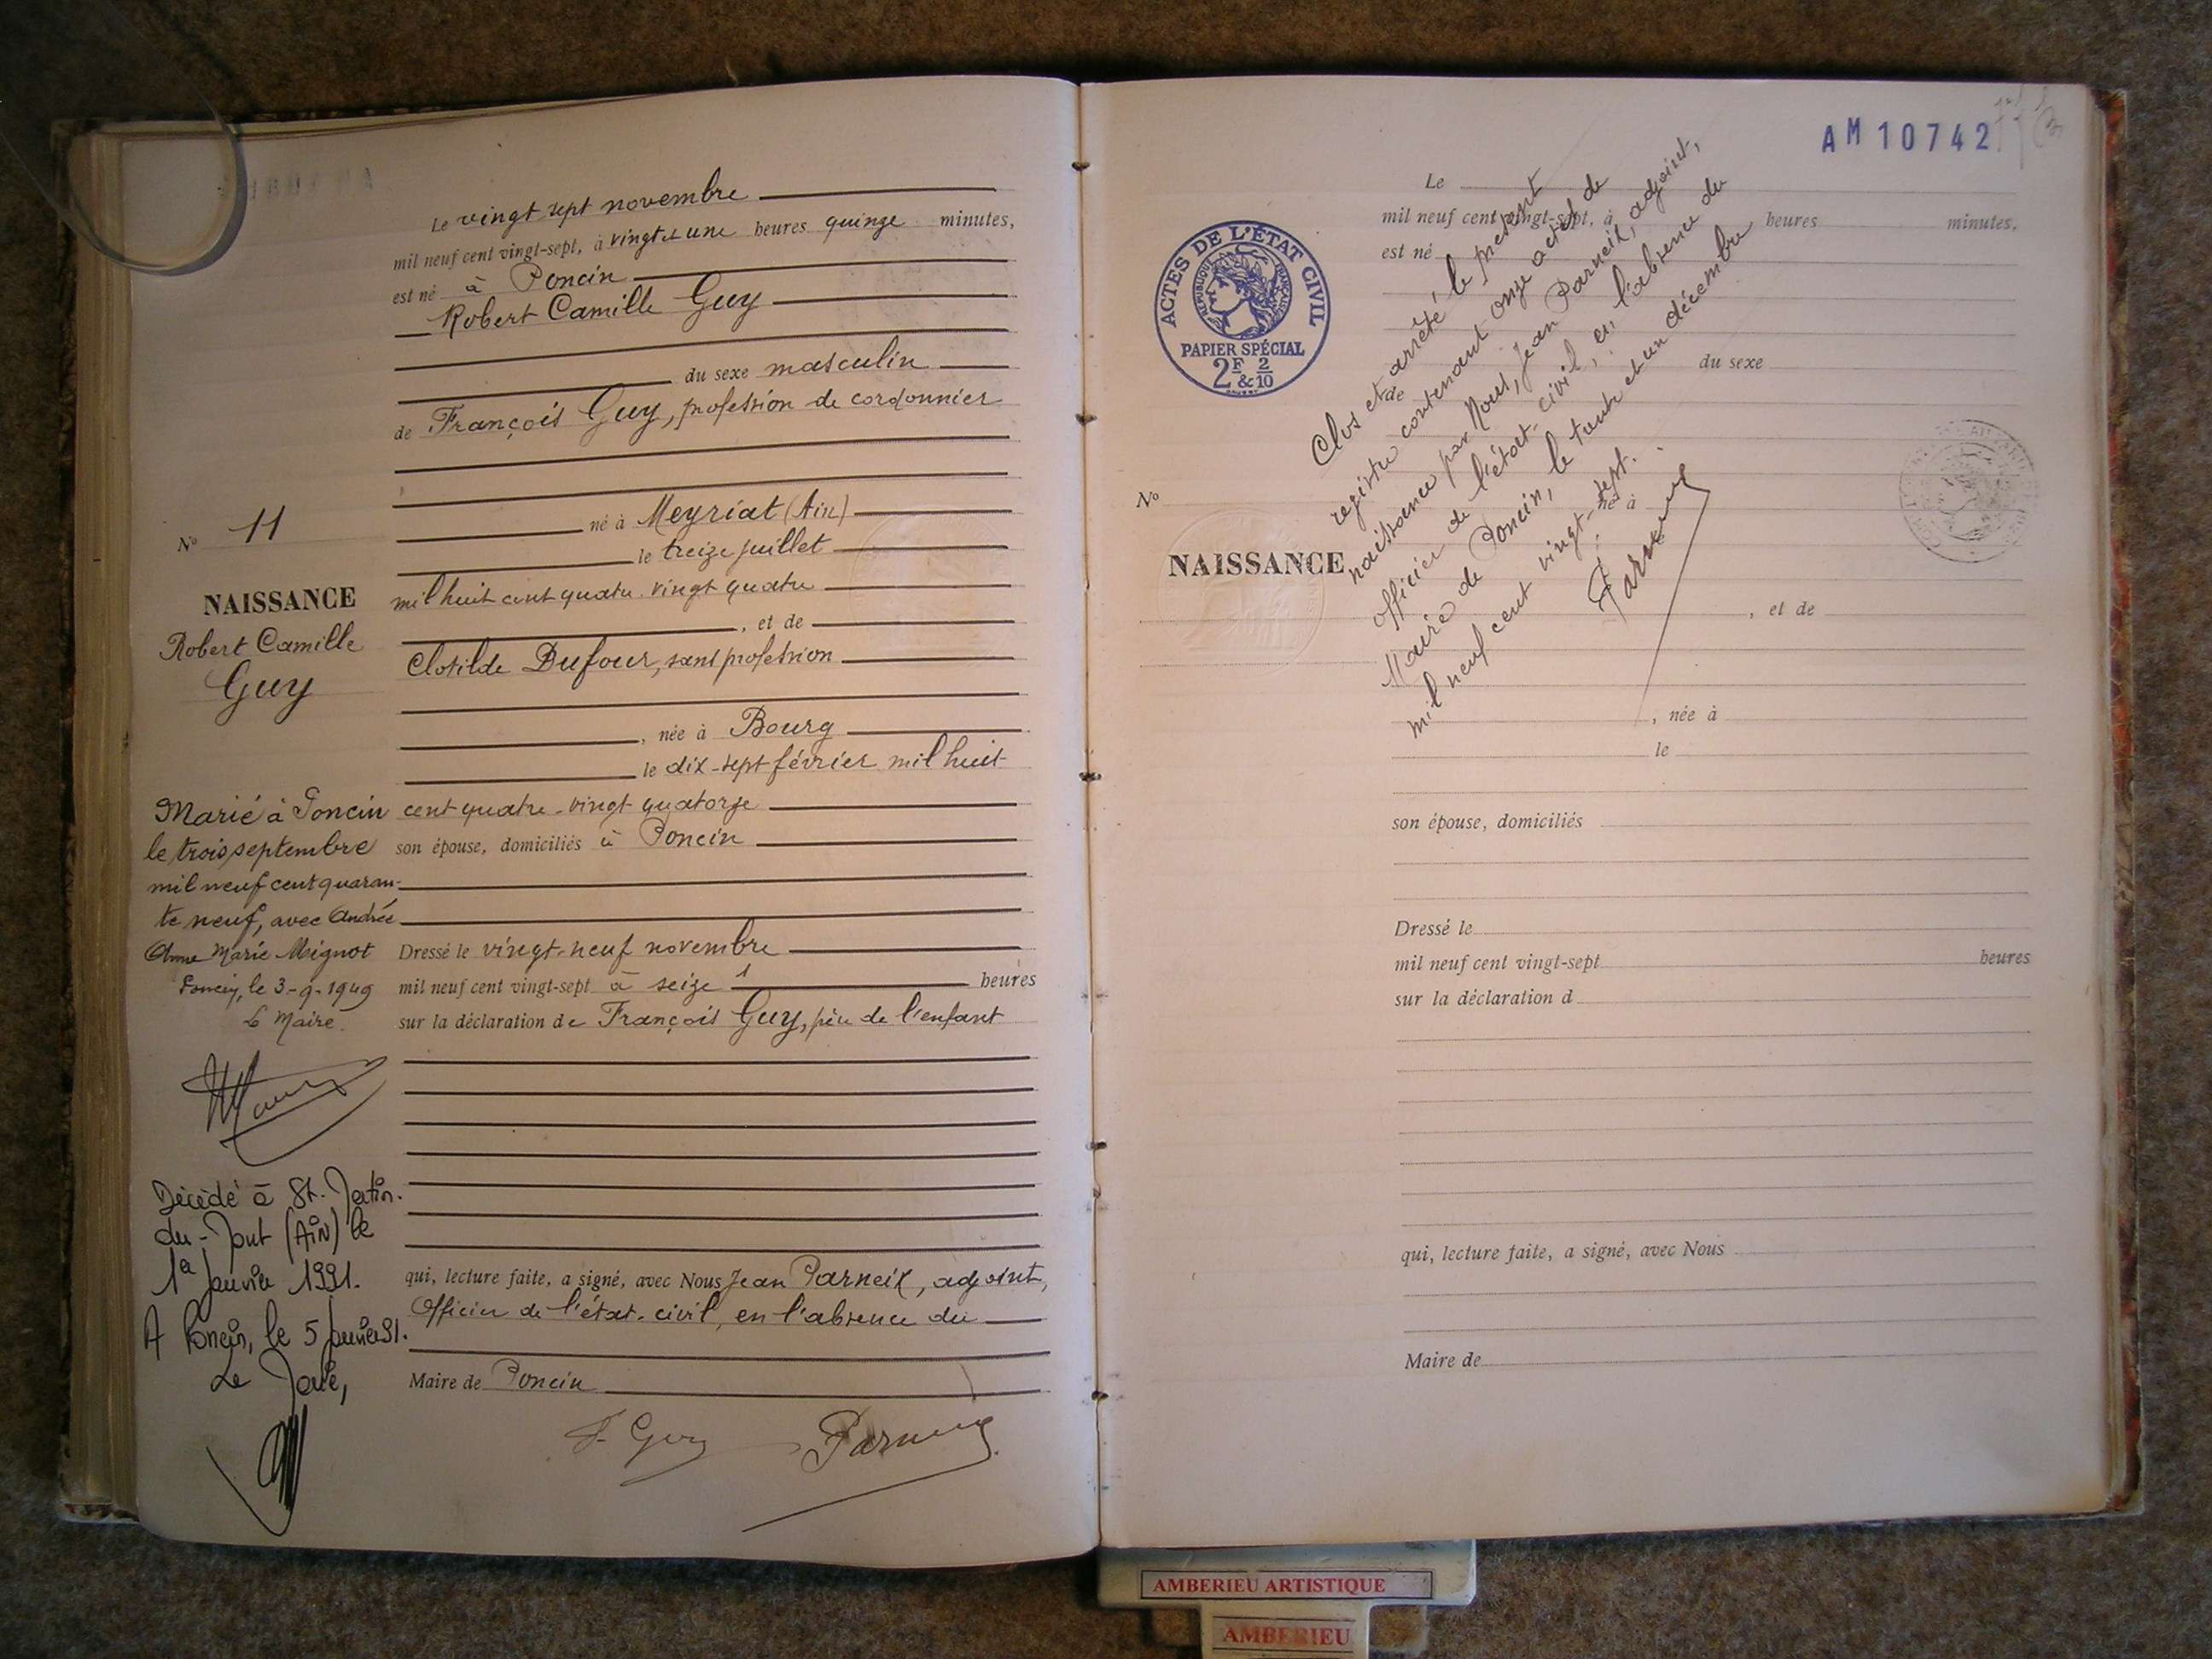 Le vingt sept novembre
mil neuf cent vingt-sept, à vingt et une heures quinze minutes,
est né à Poncin
Robert Camille Guy
du sexe masculin
de François Guy, profession de cordonnier
né à Meyriat (Ain)
le treize juillet
mil huit cent quatre-vingt quatre
, et de
Clotilde Dufour, sans profession
, née à Bourg
le dix-sept février mil huit
cent quatre-vingt quatorze
son épouse, domiciliés à Poncin
Dressé le vingt-neuf novembre
mil neuf cent vingt-sept à seize heures
sur la déclaration de François Guy, père de l'enfant
qui, lecture faite, a signé, avec Nous Jean Parneix, adjoint,
Officier de l'état-civil, en l'absence du
Maire de Poncin
F. Guy Parneix
No 11
NAISSANCE
Robert Camille
Guy
Marié à Poncin
le trois septembre
mil neuf cent quaran-
te neuf, avec Andrée
Anne Marie Mignot
Poncin, le 3-9-1949
Le Maire.
Décédé à St-
du- (AiN) le
1er Janvier 1991.
A Poncin, le 5 Janvier 91.
Le
AM 10742
ACTES DE L'ÉTAT CIVIL
RÉPUBLIQUE FRANÇAISE
PAPIER SPÉCIAL
2F 2/10
&
Le
mil neuf cent vingt-sept, à heures minutes.
est né
du sexe
de
No
né à
NAISSANCE
, et de
, née à
le
son épouse, domiciliés
Dressé le
mil neuf cent vingt-sept heures
sur la déclaration d
qui, lecture faite, a signé, avec Nous
Maire de
Clos et arrêté le présent
registre contenant onze actes de
naissance par Nous, Jean Parneix, adjoint,
officier de l'état-civil, en l'absence du
Maire de Poncin, le trente et un décembre
mil neuf cent vingt-sept.
Parneix
AMBERIEU ARTISTIQUE
AMBERIEU